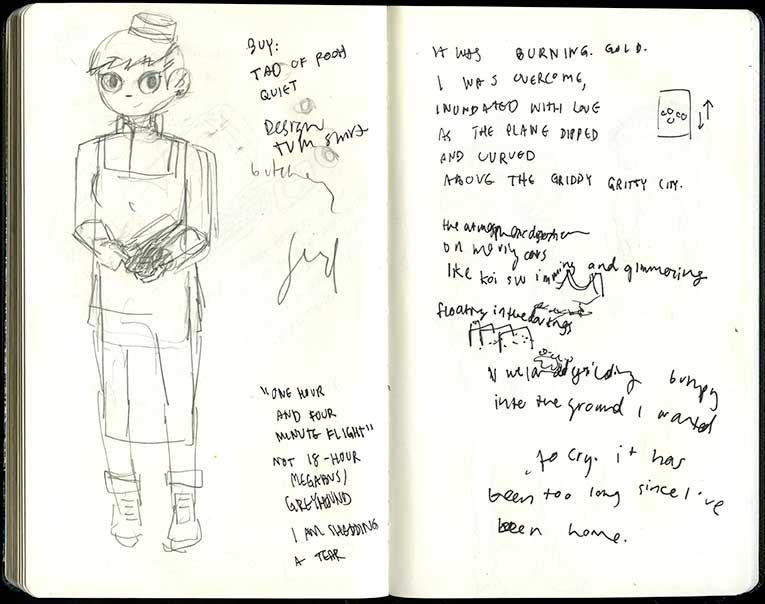 BUY:
TAO OF POOH
QUIET
DESIGN
butchery
"ONE HOUR
AND FOUR
MINUTE FLIGHT"
NOT 18-HOUR
MEGABUS/
GREYHOUND
I AM SHEDDING
A TEAR
IT WAS BURNING. GOLD.
I WAS OVERCOME,
INUNDATED WITH LOVE
AS THE PLANE DIPPED
AND CURVED
ABOVE THE GRIDDY GRITTY CITY.
the atmospheric
on moving cars
like koi swimming and glimmering
floating in the
bumpy
into the ground I wanted
to cry. it has
been too long since I've
been home.